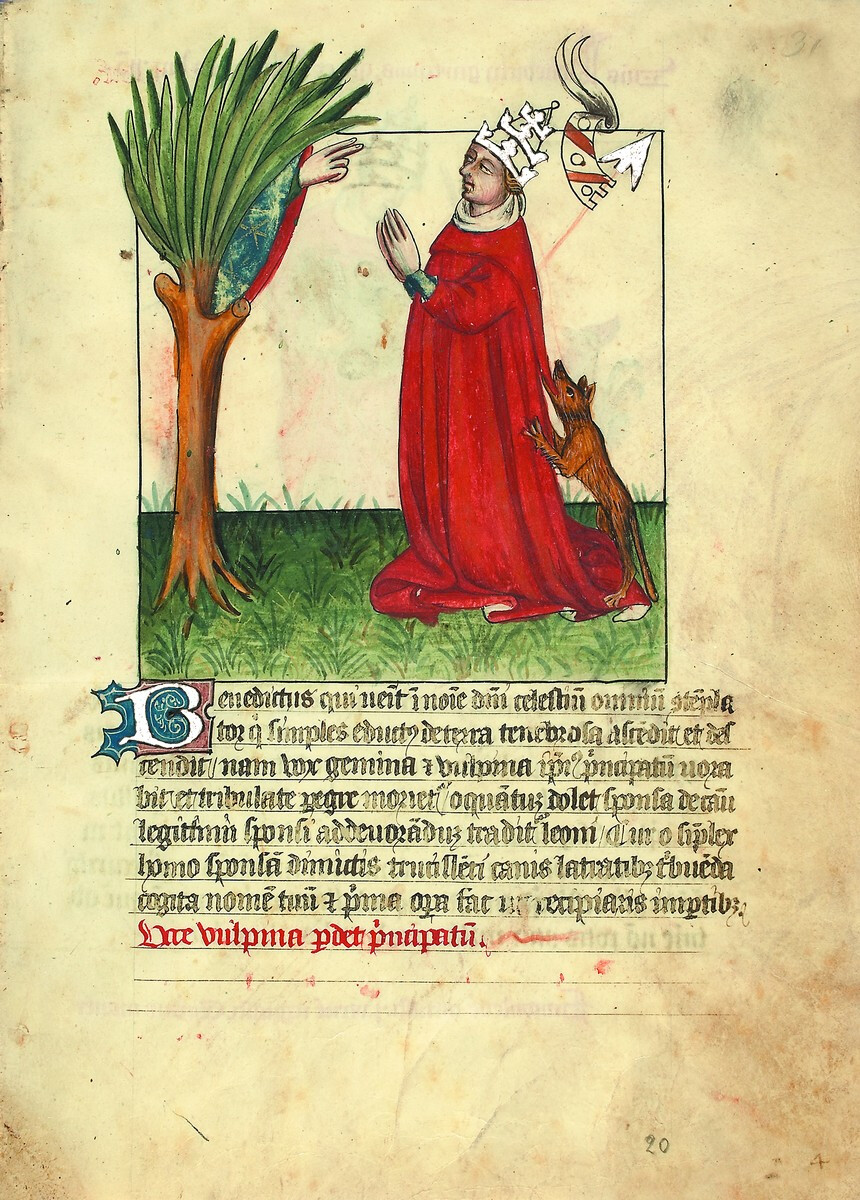 31
Benedictus qui ueit ī noīe dnī celestiū omniū 9tēpla
tor q̄ simplex eductꝯ de terra tenebrosa ascēdit et des
cendit / nam vox gemina ⁊ vulpina pncipatū uora
bit et tribulate oquātuꝫ dolet sponsa de casu
legittimi sponsi ad deuorāduꝫ tradit leoni / Cur o siplex
hōmo sponsā dimictis canis latratibꝫ
cogita nomē tuū ⁊ pͥma opa fac ut recipiaris
Vox vulpina pdet pncipatū.
20